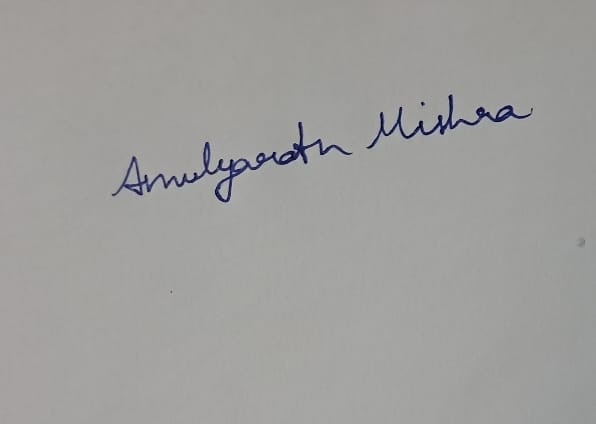 Amulyaratn Mishra